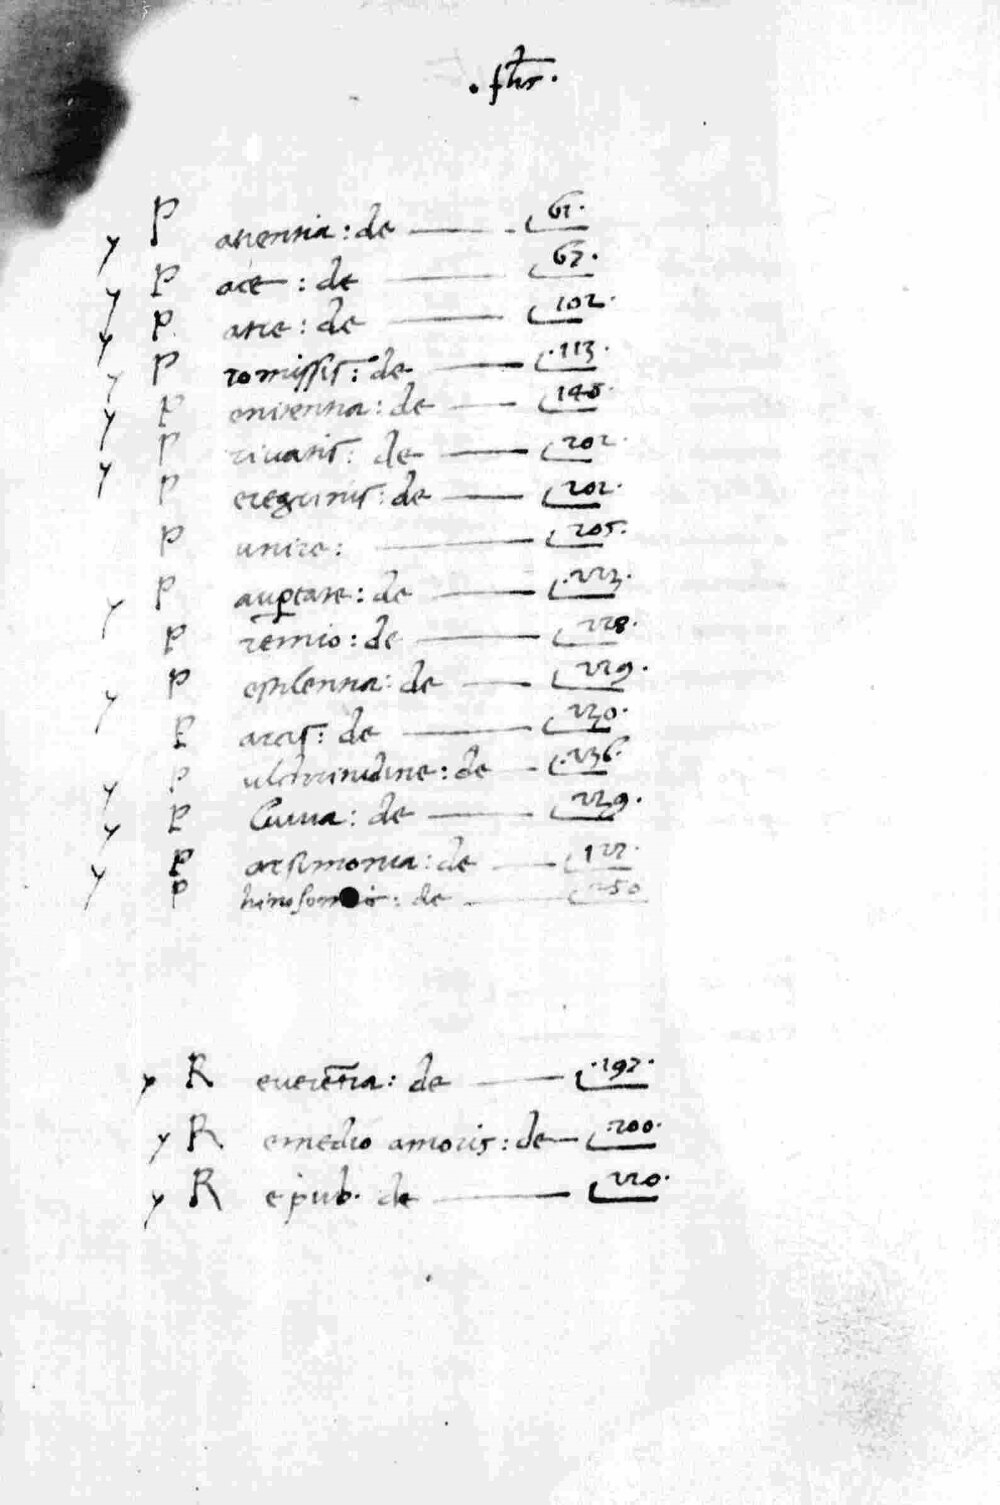 y P atientia : de 61.
y P ace : de 63.
y P atre : de 102.
y P romissis : de .113.
y P enitentia : de 140.
y P rivatis : de 202.
P eregrinis : de 202.
P unire : 205.
y P aup̱tate : de .223.
P remio : de 228.
y P estilentia : de 229.
P arcis : de 230.
y P ulchritudine : de .236.
y P luuia : de 239.
y P arsimonia : de 122.
P de 250
y R euerētia : de .197.
y R emedio amoris : de 200.
y R epub. de 220.